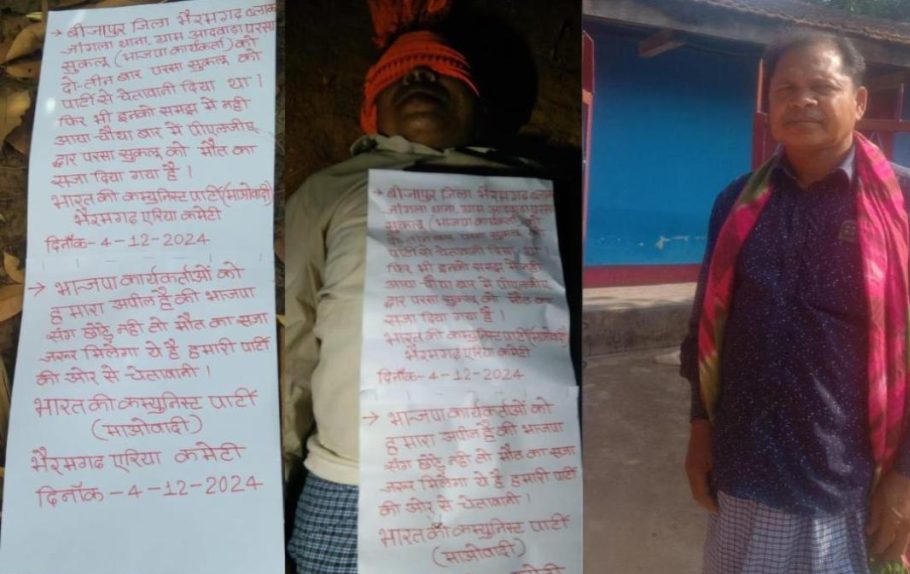 → बीजापुर जिला भैरमगढ़ ब्लाक
जांगला थाना, ग्राम आदवाड़ा परसा
सुकलू (भाजपा कार्यकर्ता) को
दो-तीन बार परसा सुकलू को
पार्टी से चेतावानी दिया था।
फिर भी इनको समझ में नही
आया चौथा बार में पीएलजीए
द्वार परसा सुकलू को मौत का
सजा दिया गया है।
भारत की कम्युनिस्ट पार्टी (माओवादी)
भैरमगढ एरिया कमेटी
दिनाँक-4-12-2024
→ भाजपा कार्यकर्ताओं को
हमारा अपील है की भाजपा
संग छोड़े नही तो मौत का सजा
जरूर मिलेगा ये है हमारी पार्टी
की ओर से चेतावानी।
भारत की कम्युनिस्ट पार्टी
(माओवादी)
भैरमगढ एरिया कमेटी
दिनाँक-4-12-2024
→ बीजापुर जिला भैरमगढ़ ब्लाक
जांगला थाना, ग्राम आदवाड़ा परसा
सुकलू (भाजपा कार्यकर्ता) को
दो-तीन बार परसा सुकलू को
पार्टी से चेतावानी दिया था।
फिर भी इनको समझ में नही
आया चौथा बार में पीएलजीए
द्वार परसा सुकलू को मौत का
सजा दिया गया है।
भारत की कम्युनिस्ट पार्टी (माओवादी)
भैरमगढ एरिया कमेटी
दिनाँक-4-12-2024
→ भाजपा कार्यकर्ताओं को
हमारा अपील है की भाजपा
संग छोड़े नही तो मौत का सजा
जरूर मिलेगा ये है हमारी पार्टी
की ओर से चेतावानी।
भारत की कम्युनिस्ट पार्टी
(माओवादी)